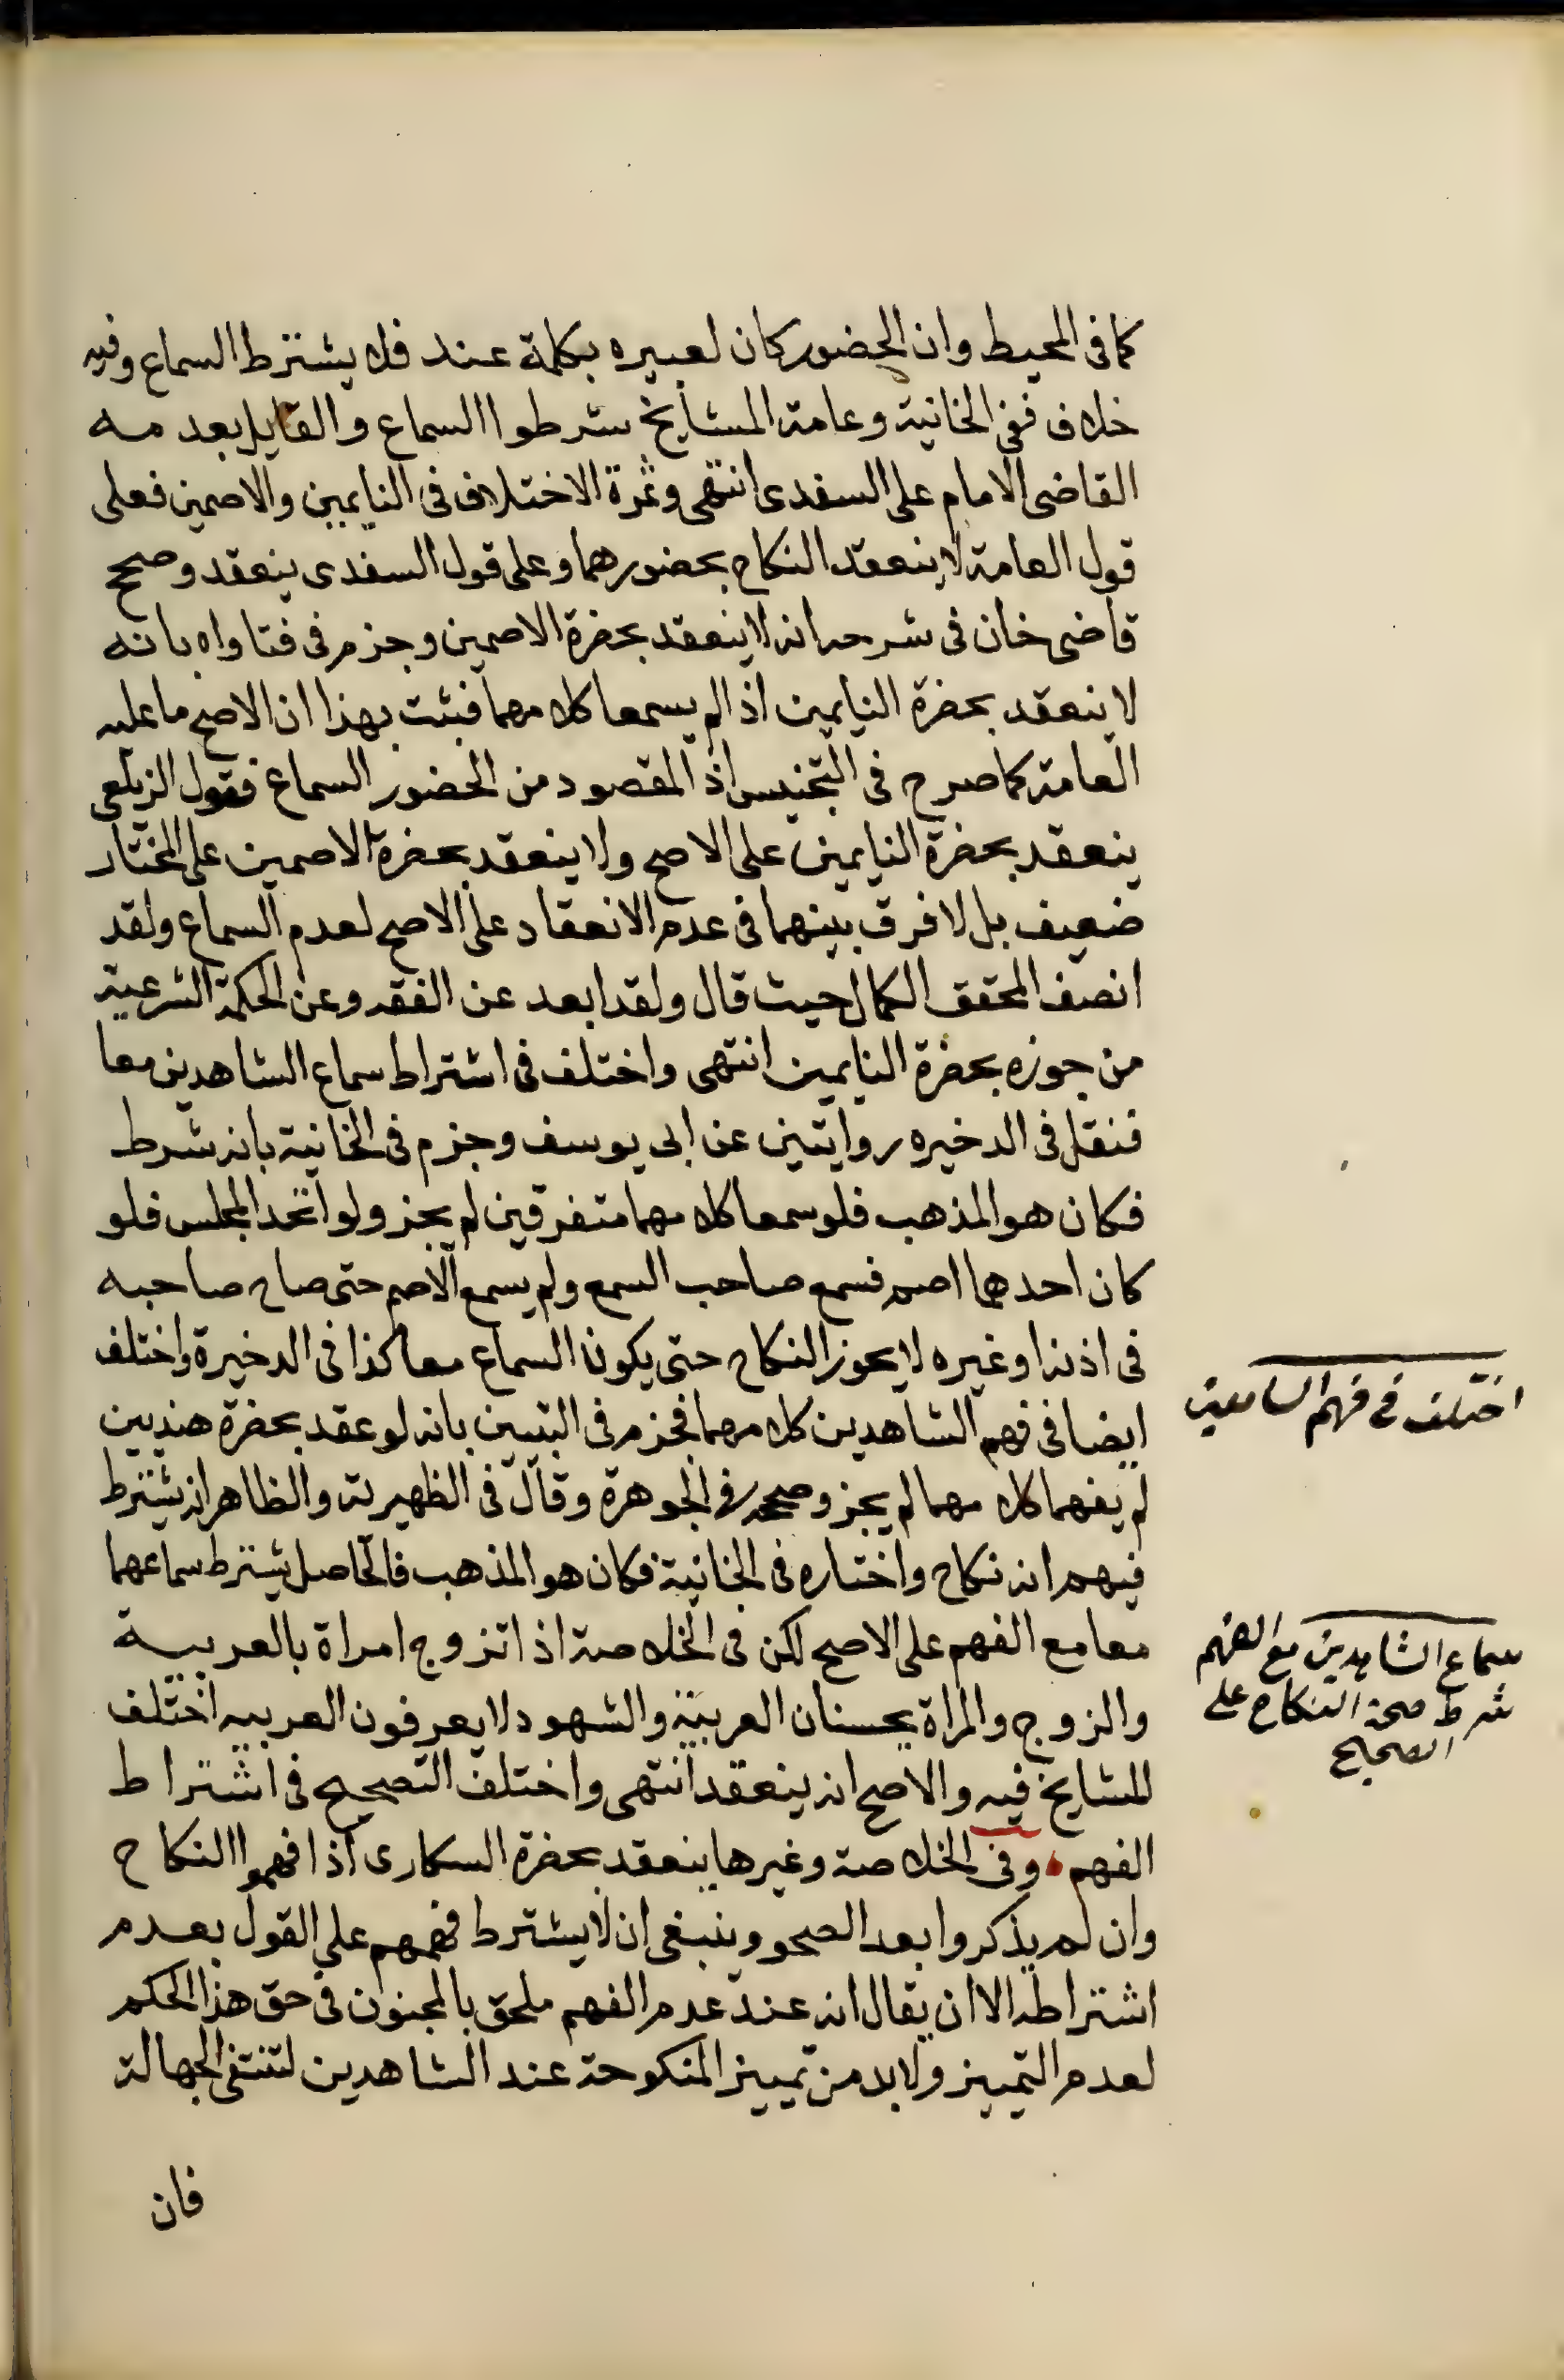 كما فى المحيط وان الحضور كان لعبيره بكلمة عند فلا يشترط السماع وفيه
خلاف ففى الخانية وعامة المشايخ شرطوا السماع والقايل بعدمه
القاضى الامام على السغدى انتهى وثمرة الاختلاف فى النايمين والاصمين فعلى
قول العامة لا ينعقد النكاح بحضورهما وعلى قول السغدى ينعقد وصحح
قاضى خان فى شرحه انه لا ينعقد بحضرة الاصمين وجزم فى فتاواه بانه
لا ينعقد بحضرة النايمين اذا لم يسمعا كلامهما فثبت بهذا ان الاصح ما عليه
العامة كما صرح فى التجنيس اذ المقصود من الحضور السماع فقول الزيلعى
ينعقد بحضرة النايمين على الاصح ولا ينعقد بحضرة الاصمين على المختار
ضعيف بل لا فرق بينهما فى عدم الانعقاد على الاصح لعدم السماع ولقد
انصف المحقق الكمال حيث قال ولقد ابعد عن الفقه وعن الحكمة الشرعية
من جوزه بحضرة النايمين انتهى واختلف فى اشتراط سماع الشاهدين معا
فنقل فى الدخيره روايتين عن ابى يوسف وجزم فى الخانية بانه شرط
فكان هو المذهب فلو سمعا كلامهما متفرقين لم يجز ولو اتحد المجلس فلو
كان احدهما اصم فسمع صاحب السمع ولم يسمع الاصم حتى صاح صاحبه
فى اذنه او غيره لا يجوز النكاح حتى يكون السماع معا كذا فى الدخيرة واختلف
ايضا فى فهم الشاهدين كلامهما فجزم فى التبيين بانه لو عقد بحضرة هنديين
لم يفهما كلامهما لم يجز وصححه فى الجوهرة وقال فى الظهيرية والظاهر انه يشترط
فيهم انه نكاح واختاره فى الخانية فكان هو المذهب فالحاصل يشترط سماعهما
معا مع الفهم على الاصح لكن فى الخلاصة اذا تزوج امراة بالعربية
والزوج والمراة يحسنان العربية والشهود لا يعرفون العربيه اختلف
المشايخ فيه والاصح انه ينعقد انتهى واختلف التصحيح فى اشتراط
الفهم وفى الخلاصة وغيرها ينعقد بحضرة السكارى اذا فهموا النكاح
وان لم يذكروا بعد الصحو وينبغى ان لا يشترط فهمهم على القول بعدم
اشتراطه الا ان يقال انه عند عدم الفهم ملحق بالمجنون فى حق هذا الحكم
لعدم التمييز ولا بد من تمييز المنكوحة عند الشاهدين لتنتفى الجهالة
فان
اختلف فى فهم السامعين
سماع الشاهدين مع الفهم
شرط صحة النكاح على
الصحيح